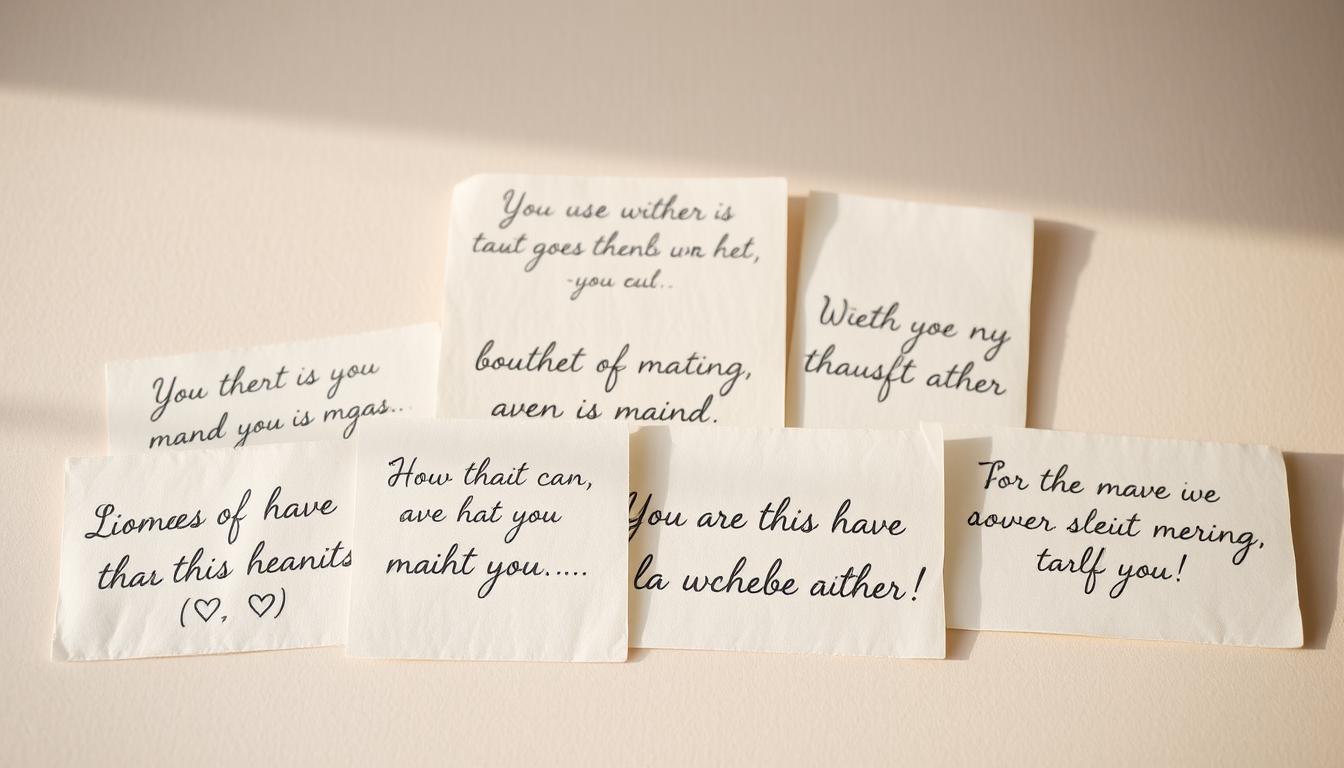 You use wither is
taut goes thenb wn het,
-you cul..
bouthet of mating,
aven is maind.
Wieth yoe ny
thausft ather
You thert is you
mand you is mgas...
Liomees of have
thar this heanits
(♡, ♡)
How thait can,
ave hat you
maiht you.....
You are this have
la wchebe aither!
For the mave ive
aower sleut mering,
tarlf you!